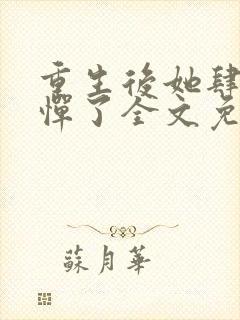 重生後她肆
憚了全文免
蘇月華